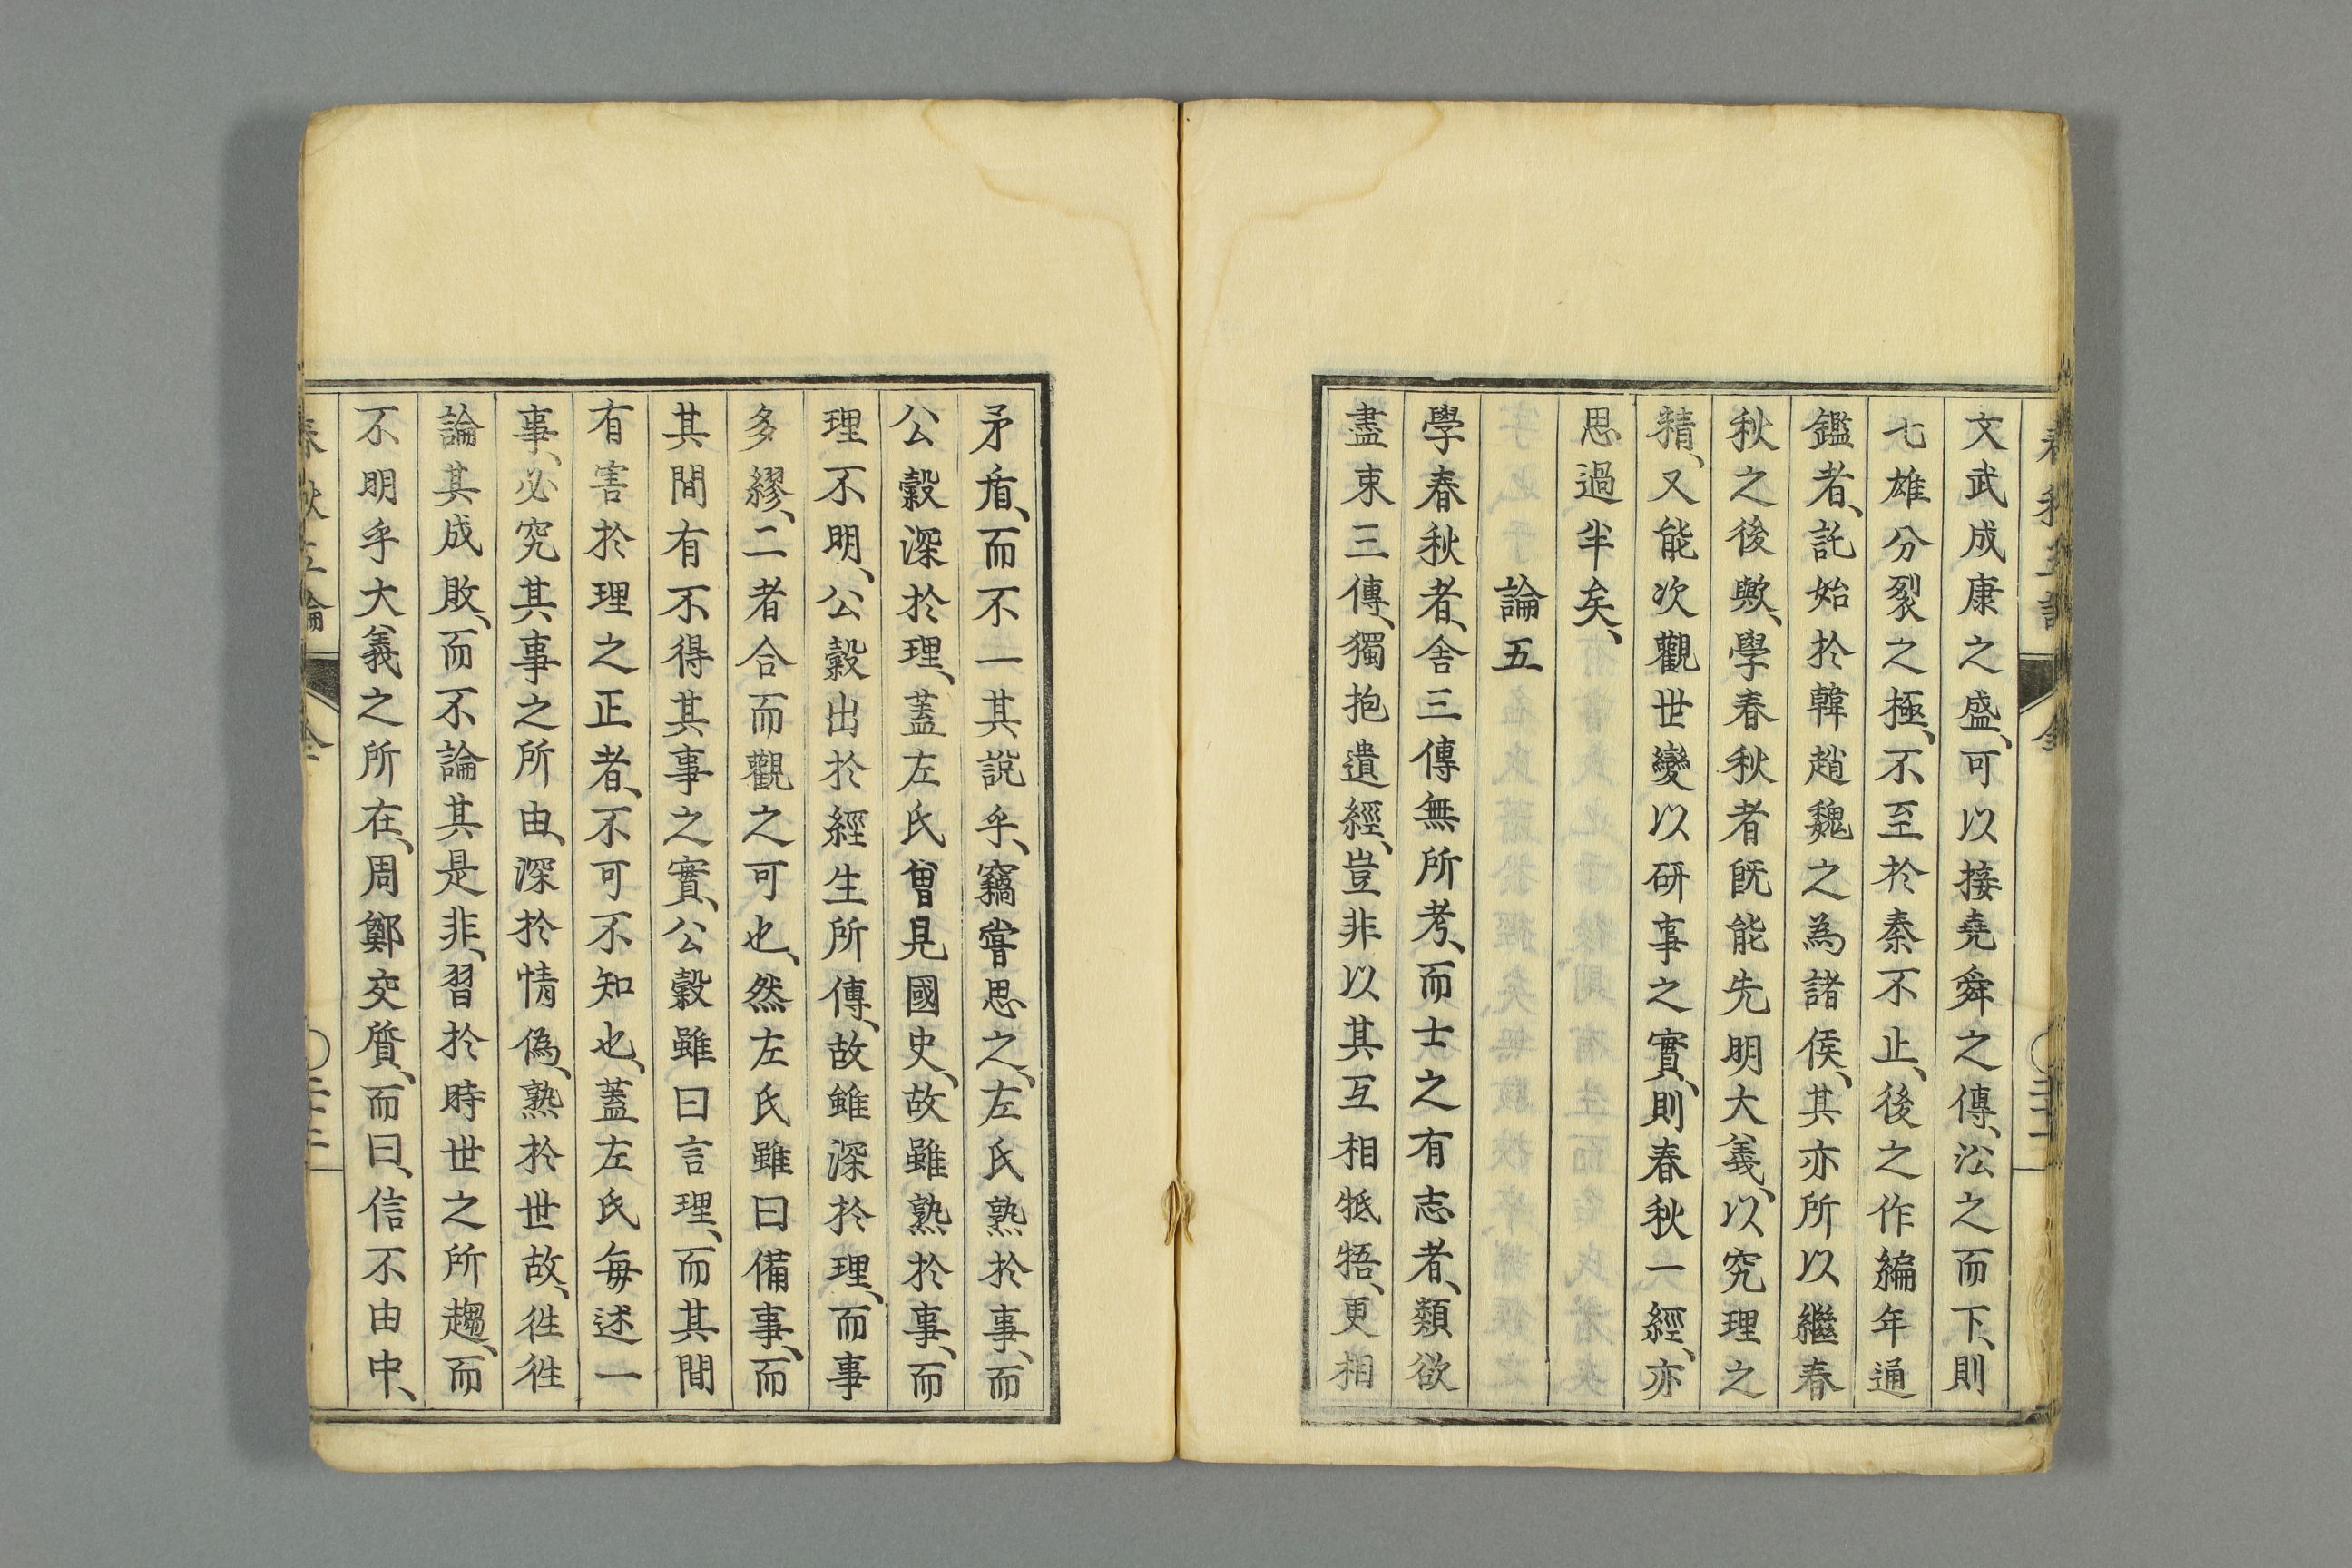 文武成康之盛、可以接堯舜之傳、沿之而下、則
七雄分裂之極、不至於秦不止、後之作編年通
鑑者、託始於韓趙魏之為諸侯、其亦所以繼春
秋之後歟、學春秋者既能先明大義、以究理之
精、又能次觀世變以研事之實、則春秋一經、亦
思過半矣、
論五
學春秋者、舍三傳無所考、而士之有志者、類欲
盡束三傳、獨抱遺經、豈非以其互相牴牾、更相
矛盾、而不一其説乎、竊嘗思之、左氏熟於事、而
公穀深於理、蓋左氏曾見國史、故雖熟於事、而
理不明、公穀出於經生所傳、故雖深於理、而事
多繆、二者合而觀之可也、然左氏雖曰備事、而
其間有不得其事之實、公穀雖曰言理、而其間
有害於理之正者、不可不知也、蓋左氏每述一
事、必究其事之所由、深於情偽、熟於世故、徃徃
論其成敗、而不論其是非、習於時世之所趨、而
不明乎大義之所在、周鄭交質、而曰、信不由中、